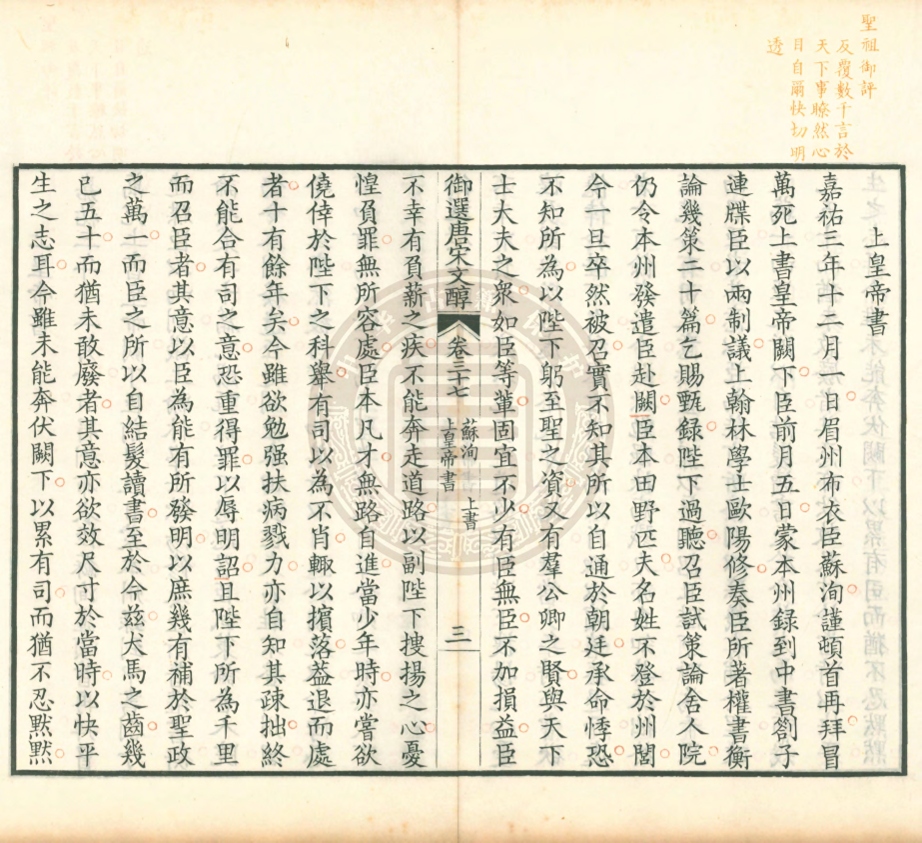 聖祖御評
反覆數千言於
天下事瞭然心
目自爾快切明
透
上皇帝書
嘉祐三年十二月一日眉州布衣臣蘇洵謹頓首再拜冒
萬死上書皇帝闕下臣前月五日蒙本州錄到中書劄子
連牒臣以兩制議上翰林學士歐陽修奏臣所著權書衡
論幾策二十篇乞賜甄錄陛下過聽召臣試策論舍人院
仍令本州發遣臣赴闕臣本田野匹夫名姓不登於州閭
今一旦卒然被召實不知其所以自通於朝廷承命悸恐
不知所為以陛下躬至聖之資又有羣公卿之賢與天下
士大夫之衆如臣等輩固宜不少有臣無臣不加損益臣
御選唐宋文醇
卷三十七
蘇洵
上書
上皇帝書
三
不幸有負薪之疾不能奔走道路以副陛下搜揚之心憂
惶負罪無所容處臣本凡才無路自進當少年時亦嘗欲
僥倖於陛下之科舉有司以為不肖輒以擯落葢退而處
者十有餘年矣今雖欲勉强扶病戮力亦自知其疎拙終
不能合有司之意恐重得罪以辱明詔且陛下所為千里
而召臣者其意以臣為能有所發明以庶幾有補於聖政
之萬一而臣之所以自結髮讀書至於今茲犬馬之齒幾
已五十而猶未敢廢者其意亦欲效尺寸於當時以快平
生之志耳今雖未能奔伏闕下以累有司而猶不忍黙黙